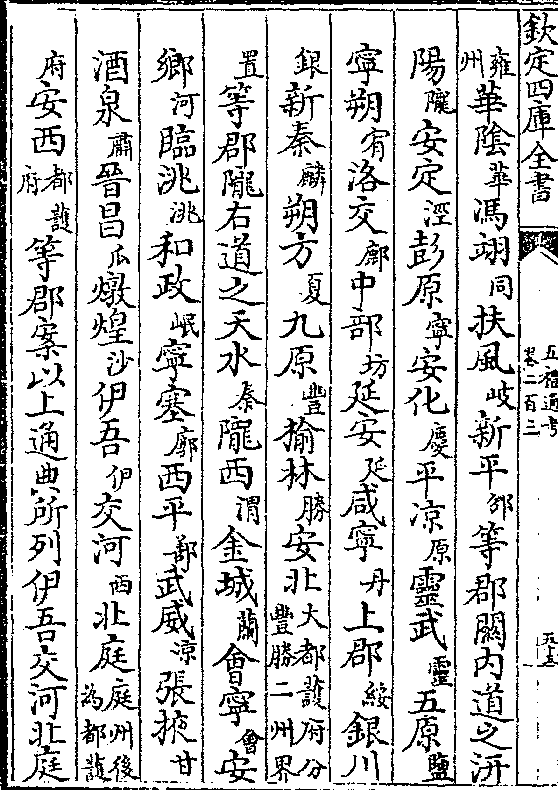 欽定四庫全書
五禮通考
卷二百二
雍州華陰華馮翊同扶風岐新平邠等郡關内道之汧
陽隴安定涇彭原寧安化慶平凉原靈武靈五原鹽
寧朔宥洛交鄜中部坊延安延咸寧丹上郡綏銀川
銀新秦麟朔方夏九原豐揄林勝安北大都護府分豐勝二州界
置等郡隴右道之天水秦隴西渭金城蘭會寧會安
鄉河臨洮洮和政岷寧塞廓西平鄯武威凉張掖甘
酒泉肅晉昌瓜燉煌沙伊吾伊交河西北庭庭州後為都護
府安西都護府等郡案以上通典所列伊吾交河北庭